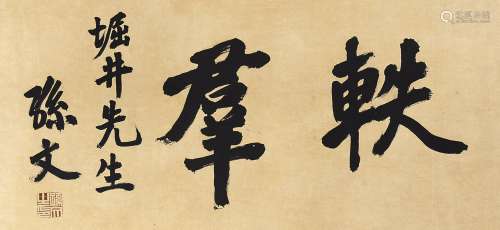 軼羣
堀井先生
孫文